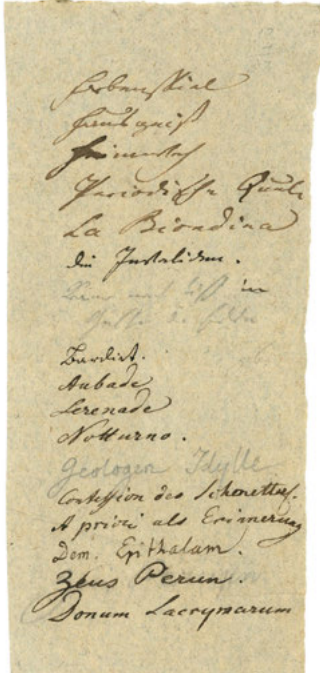 Farbenspiel
Hausgeist
Heimweh
Periodische Quelle
La Biondina
die Invaliden.
in
Bardiet.
Aubade
Serenade
Notturno.
Geologen Idylle
Confession des
A priori als Erinnerung
Dom. Epithalam.
Zeus Perun.
Donum Lacrymarum